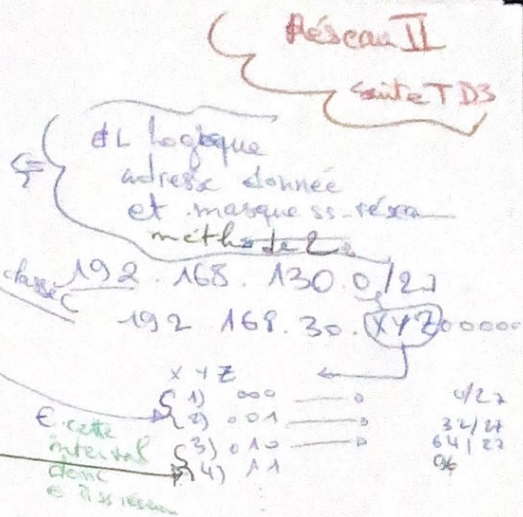 Réseau II
Suite TD3
et Logique
adresse donnée
et masque ss-résea
méthode 2
classe C
192.168.130.0/27
192 168.30.XYZ00000
XYZ
1) 000 0/27
2) 001 32/27
3) 010 64/27
4) 11 96
E cette
interval
donc